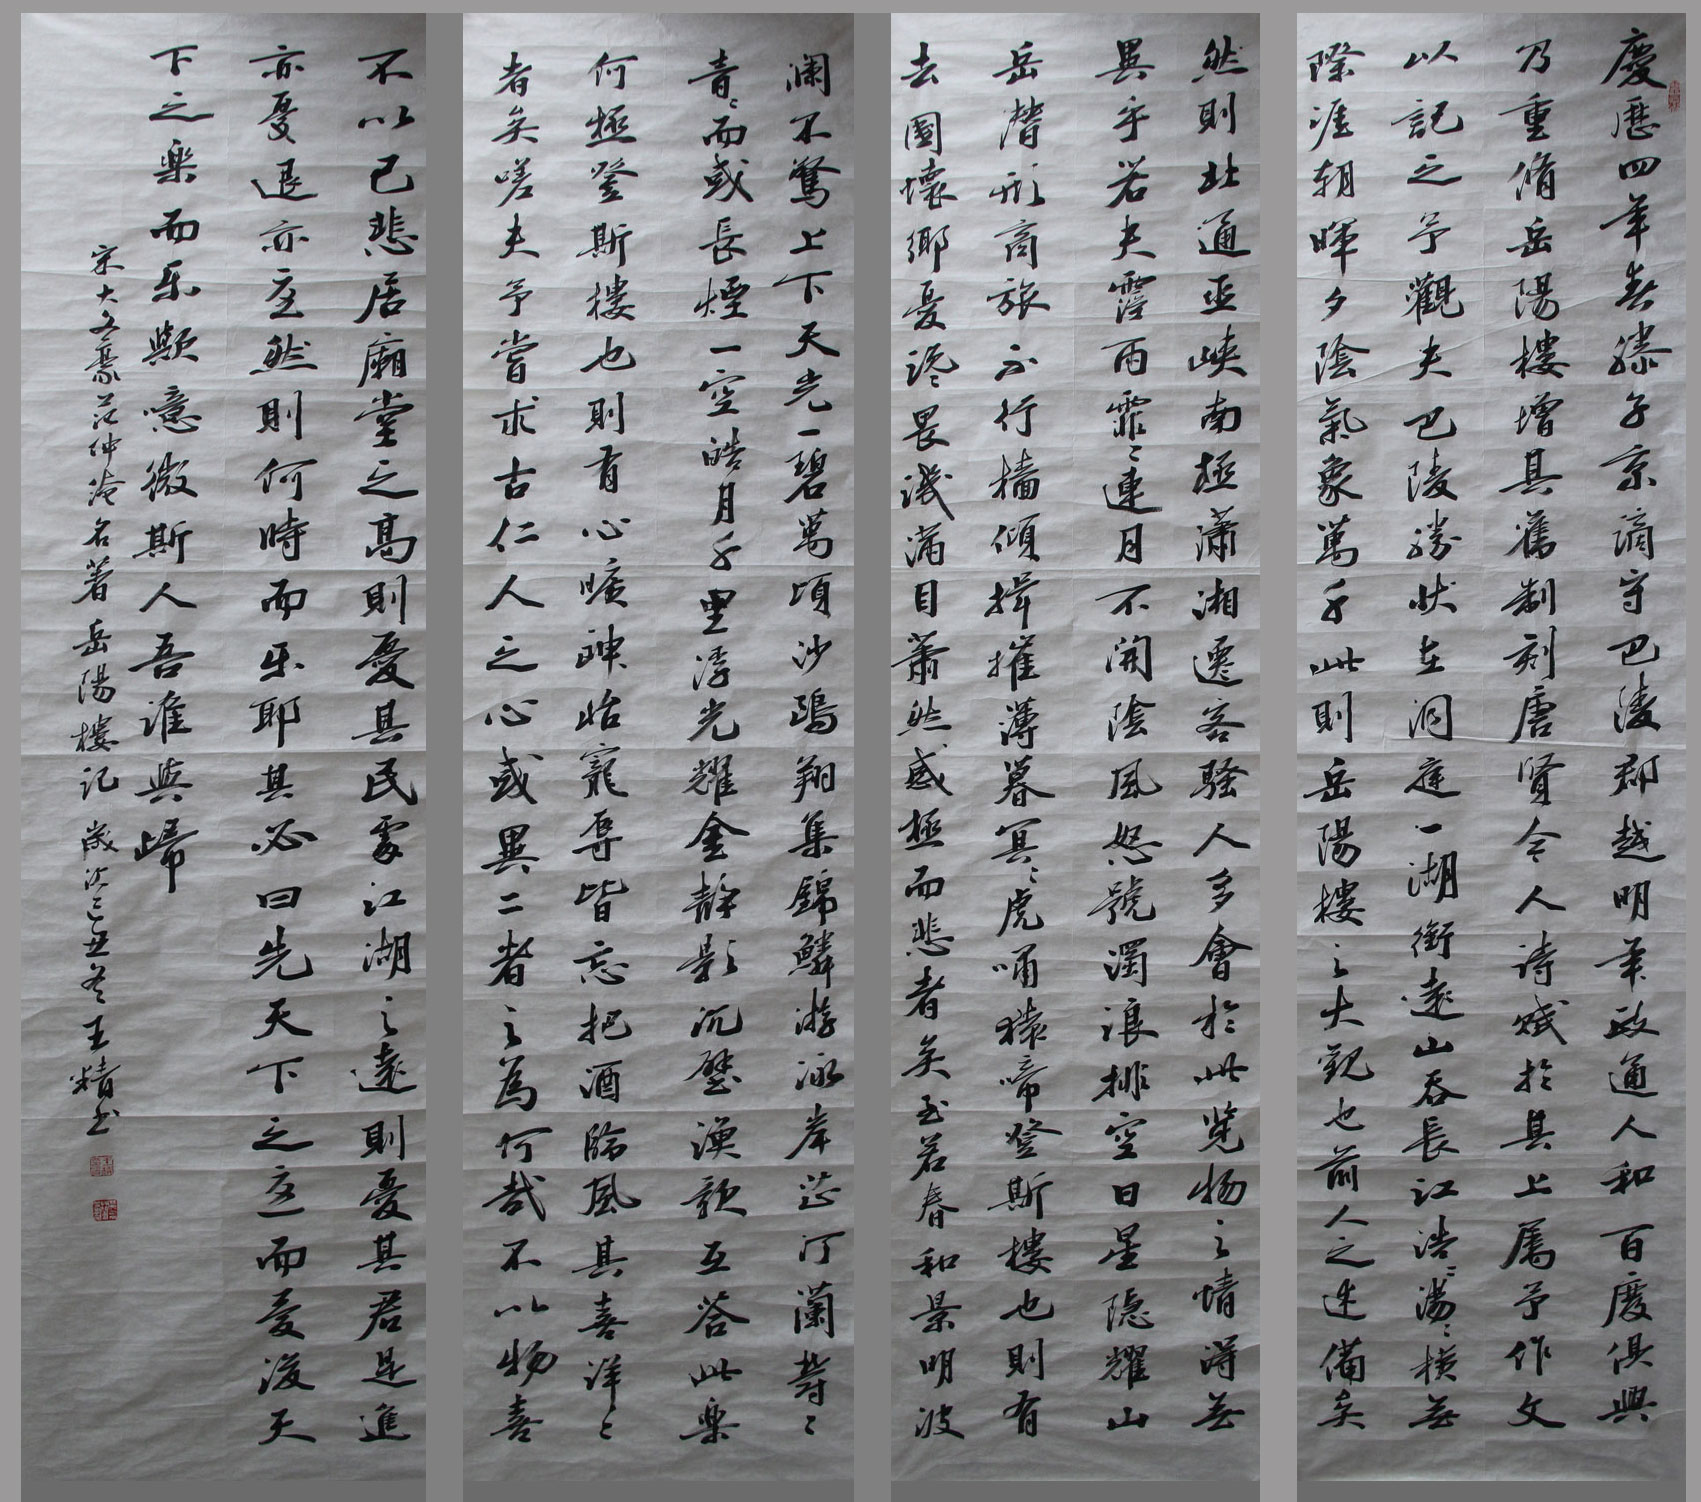 慶歷四年春滕子京謫守巴陵郡越明年政通人和百廢俱興
乃重脩岳陽樓增其舊制刻唐賢今人詩賦於其上屬予作文
以記之予觀夫巴陵勝狀在洞庭一湖銜遠山吞長江浩〻湯〻橫無
際涯朝暉夕陰氣象萬千此則岳陽樓之大觀也前人之述備矣
然則北通巫峽南極瀟湘遷客騷人多會於此覽物之情得無
異乎若夫霪雨霏〻連月不開陰風怒號濁浪排空日星隱耀山
岳潛形商旅不行檣傾楫摧薄暮冥〻虎嘯猿啼登斯樓也則有
去國懷鄉憂讒畏譏滿目蕭然感極而悲者矣至若春和景明波
瀾不驚上下天光一碧萬頃沙鷗翔集錦鱗游泳岸芷汀蘭
青〻而或長煙一空皓月千里浮光耀金靜影沉璧漁歌互答此樂
何極登斯樓也則有心曠神怡寵辱皆忘把酒臨風其喜洋〻
者矣嗟夫予嘗求古仁人之心或異二者之為何哉不以物喜
不以己悲居廟堂之高則憂其民處江湖之遠則憂其君是進
亦憂退亦憂然則何時而樂耶其必曰先天下之憂而憂後天
下之樂而樂歟噫微斯人吾誰與歸
宋大文豪范仲淹名著岳陽樓記 歲次己丑冬王精書